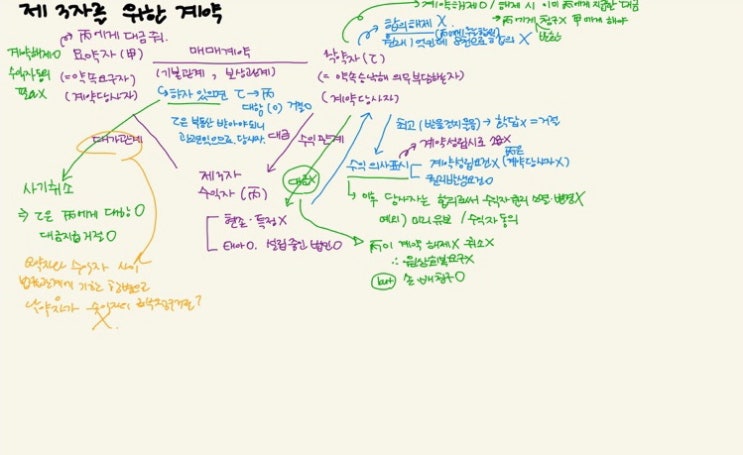 제 3자를 위한 계약
丙에게 대금 줘.
계약해제O
수익자동의
필요X
요약자(甲)
(=약속요구자)
(계약당사자)
매매계약
(기본관계, 보상관계)
낙약자(乙)
(= 약속승낙해 의무부담하는자)
(계약당사자)
합의해제 X
계약해제O / 해제 시 이미 丙에게 지급한 대금
丙에게 청구X 甲에게 해야
하자 있으면 乙→丙
대항(O) 거절O
乙은 부동산 받아야되니
대가관계
대금
수익관계
최고 → 확답X = 거절
계약성립시로 소급X
수익 의사표시
계약성립요건X (계약당사자X)
권리발생요건O
사기취소
⇒ 乙은 丙에게 대항O
대금지급거절O
제3자
수익자(丙)
현존·특정X
태아O. 설립중인 법인O
대금X
이후 당사자는 합의로써 수익자 권리 소멸·변경X
예외) 미리유보 / 수익자동의
丙이 계약 해제X 취소X
∴ 원상회복요구X
but 손배청구O
요약자와 수익자 사이
법률관계에 기한 항변으로
낙약자가 수익자에
X.